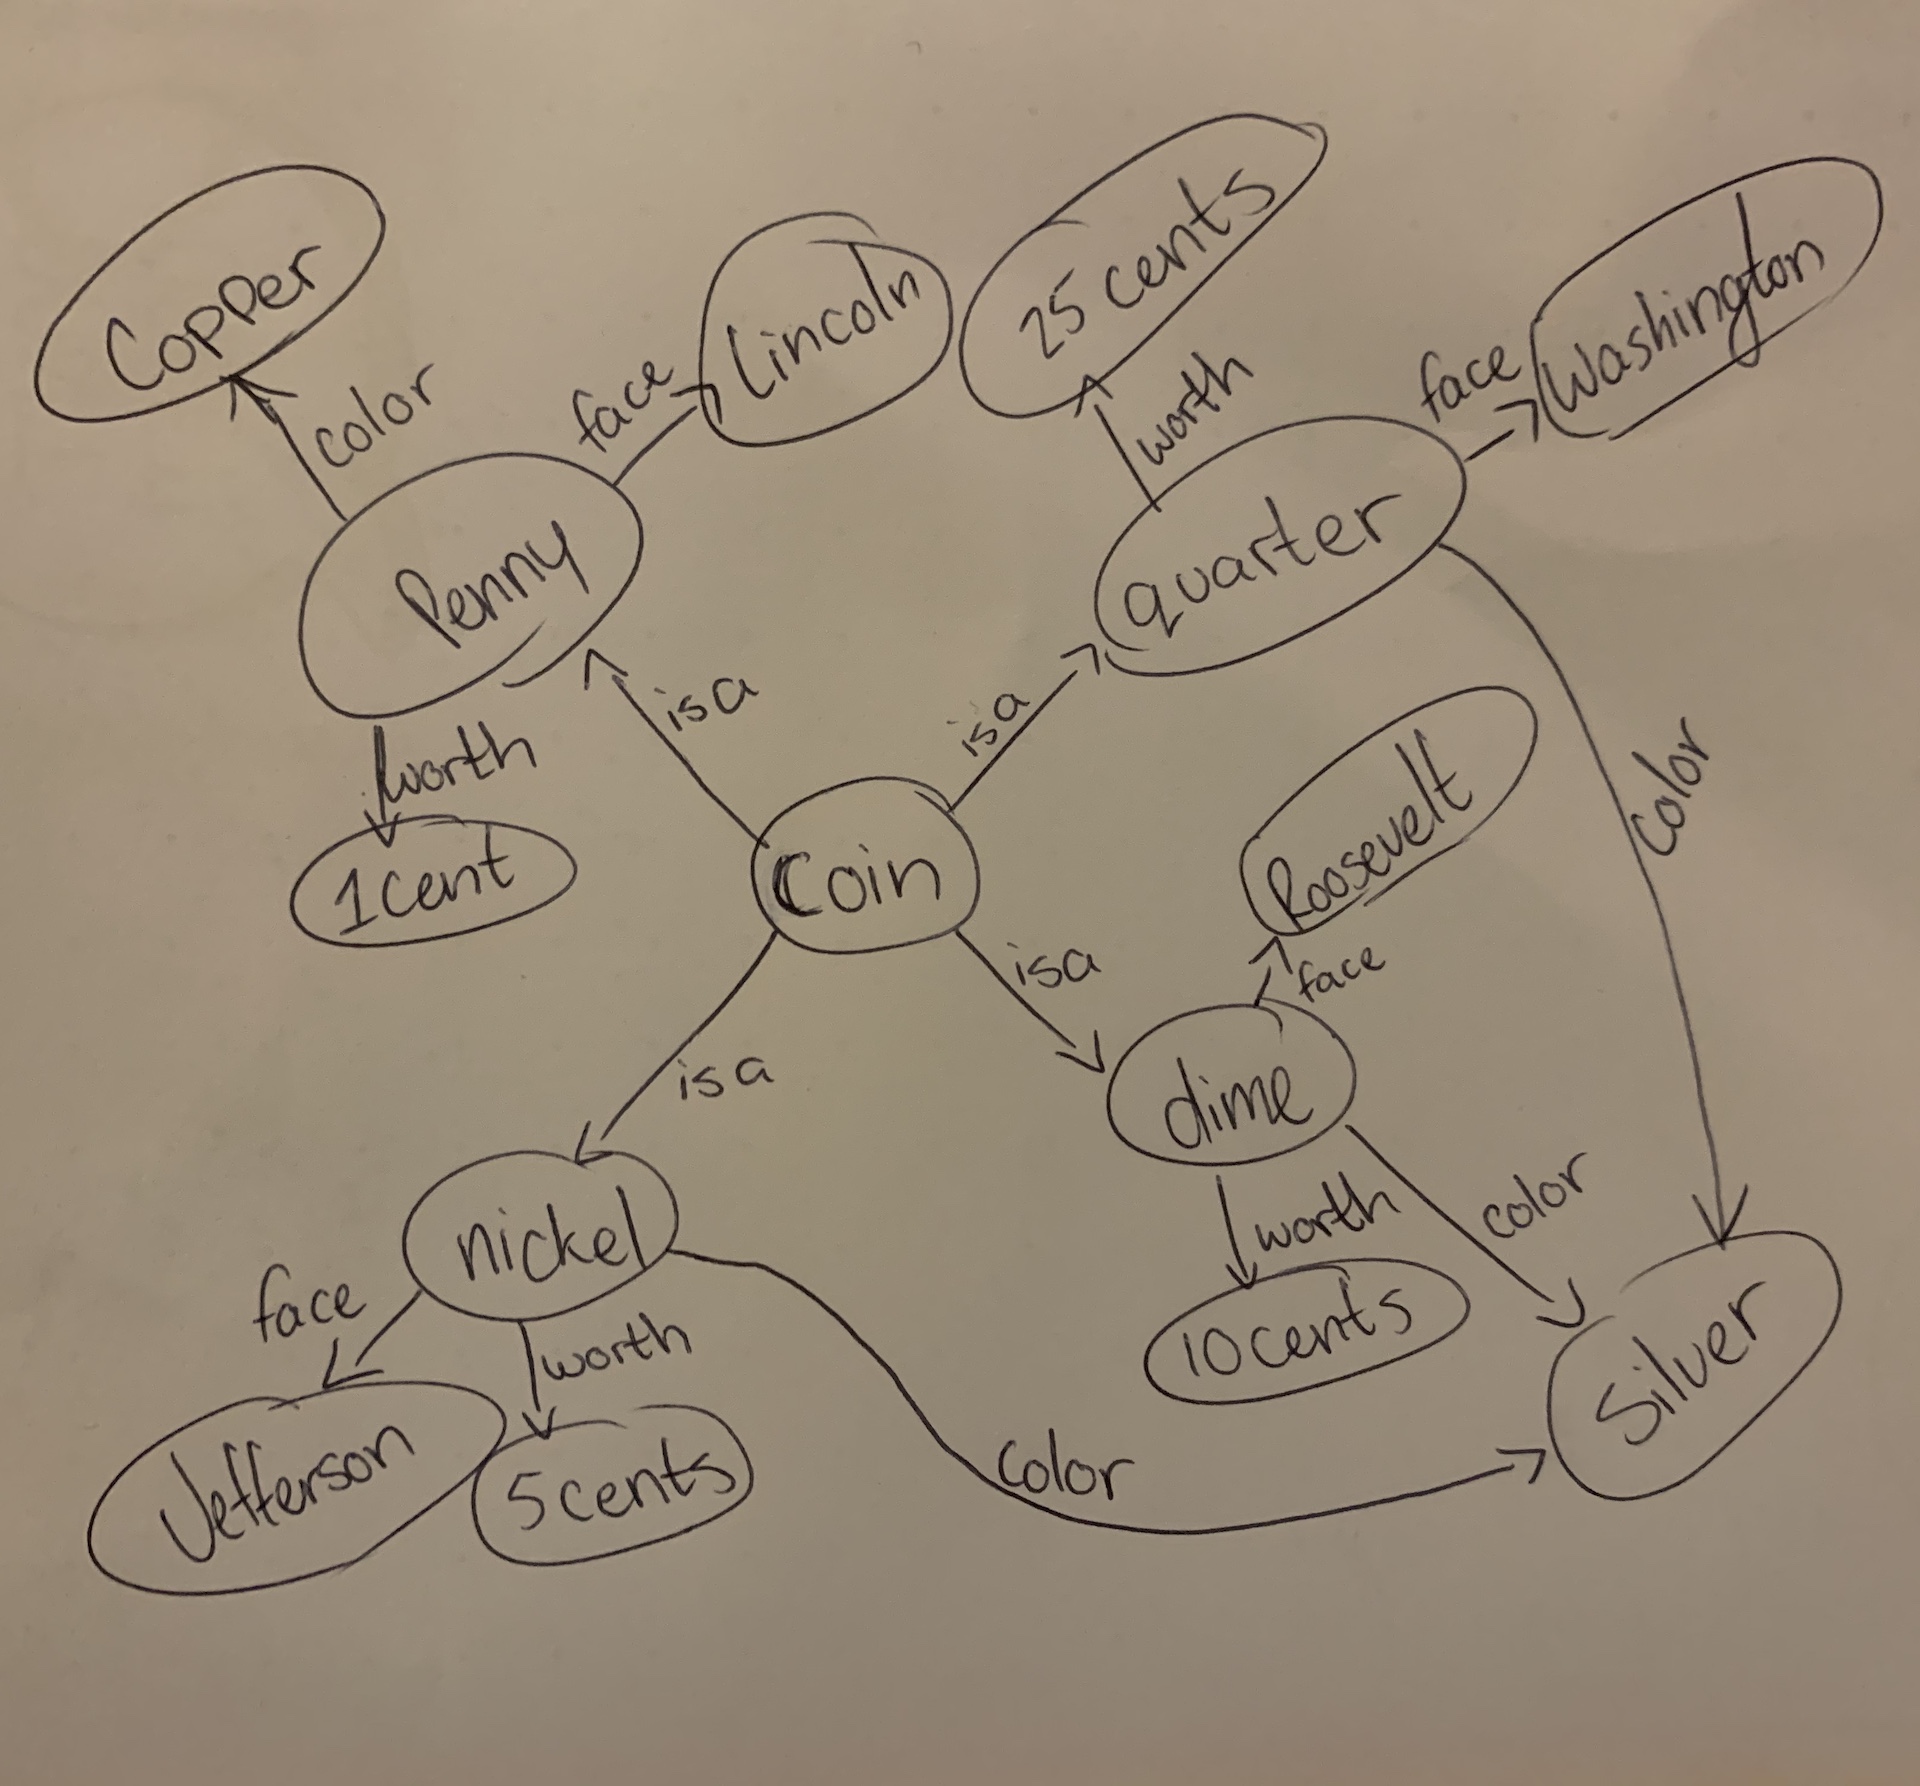 Copper
color
Lincoln
face
25 cents
worth
Washington
face
Penny
quarter
is a
is a
worth
1 cent
Roosevelt
color
coin
face
is a
is a
dime
nickel
worth
color
face
worth
10 cents
Silver
Jefferson
5 cents
color